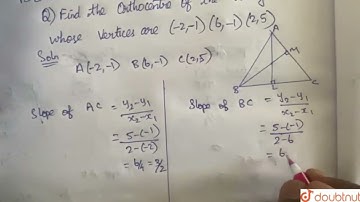 Q) Find the Orthocentre of the
whose vertices are (-2,-1) (6,-1) (2,5)
Soln
A(-2,-1) B(6,-1) C(2,5)
A
M
B
L
C
Slope of AC = y2-y1
x2-x1
= 5-(-1)
2-(-2)
= 6/4 = 3/2
Slope of BC = y2-y1
x2-x1
= 5-(-1)
2-6
= 6
doubtnut